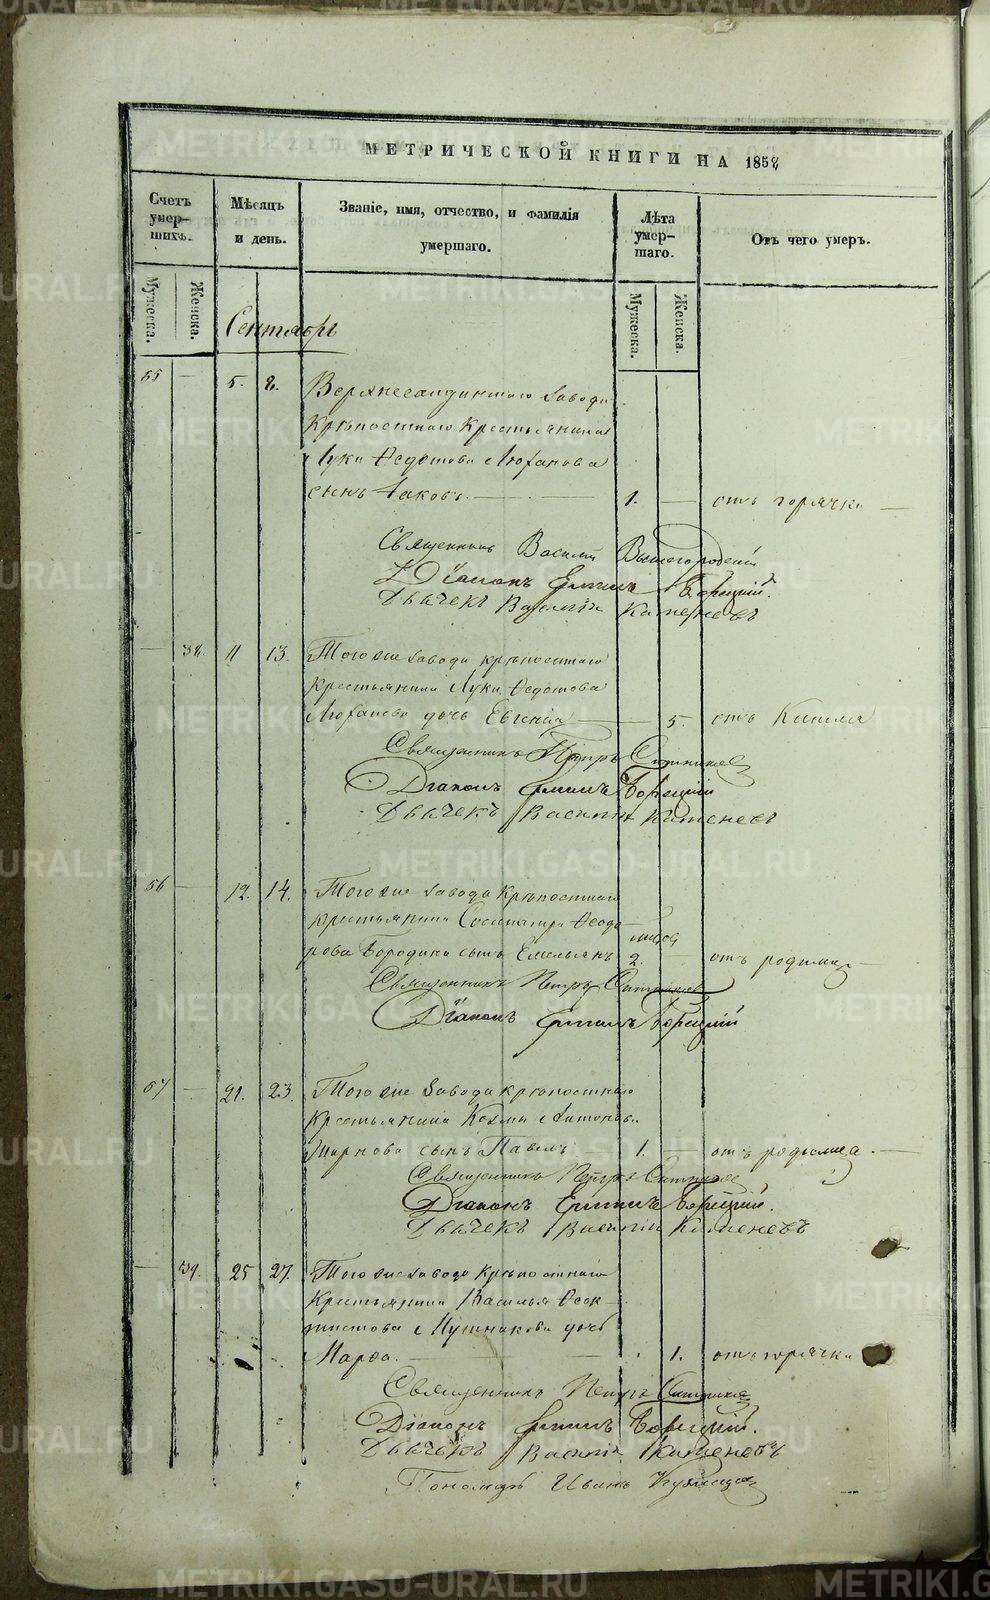 МЕТРИЧЕСКОЙ КНИГИ НА 1858
Счетъ умер-шихъ.
Мѣсяцъ и день.
Званіе, имя, отчество, и фамилія умершаго.
Лѣта умер-шаго.
Отъ чего умеръ.
Мужеска.
Женска.
Мужеска.
Женска.
Сентябрь
55 — 5. 8. Верхнесалдинскаго завода
крѣпостнаго крестьянина
Луки Ѳедотова
сынъ Іаковъ. — 1. — отъ горячки —
Священникъ Василій
Діаконъ Борецкій.
Дьячекъ Василій Каменевъ
— 38. 11 13. Того же завода крѣпостнаго
крестьянина Луки Ѳедотова
дочь Евгенія — 5. отъ кашля
Священникъ Петръ Ситников
Діаконъ Борецкій
Дьячекъ Василій Каменевъ
56 — 12. 14. Того же завода крѣпостнаго
крестьянина Ѳеодо-
рова Бородина сынъ Емельянъ 2. — отъ родимца —
Священникъ Петръ Ситников
Діаконъ Борецкій
57 — 21. 23. Того же завода крѣпостнаго
крестьянина Козмы Антонова
сынъ Павелъ 1. — отъ родимца. —
Священникъ Петръ Ситников
Діаконъ Борецкій.
Дьячекъ Василій Каменевъ
— 39. 25 27. Того же завода крѣпостнаго
крестьянина Василья Ѳеок-
тистова дочь
Марѳа. — 1. отъ горячки
Священникъ Петръ Ситников
Діаконъ Борецкій.
Дьячекъ Василій Каменевъ
Пономарь Иванъ
METRIKI.GASO-URAL.RU